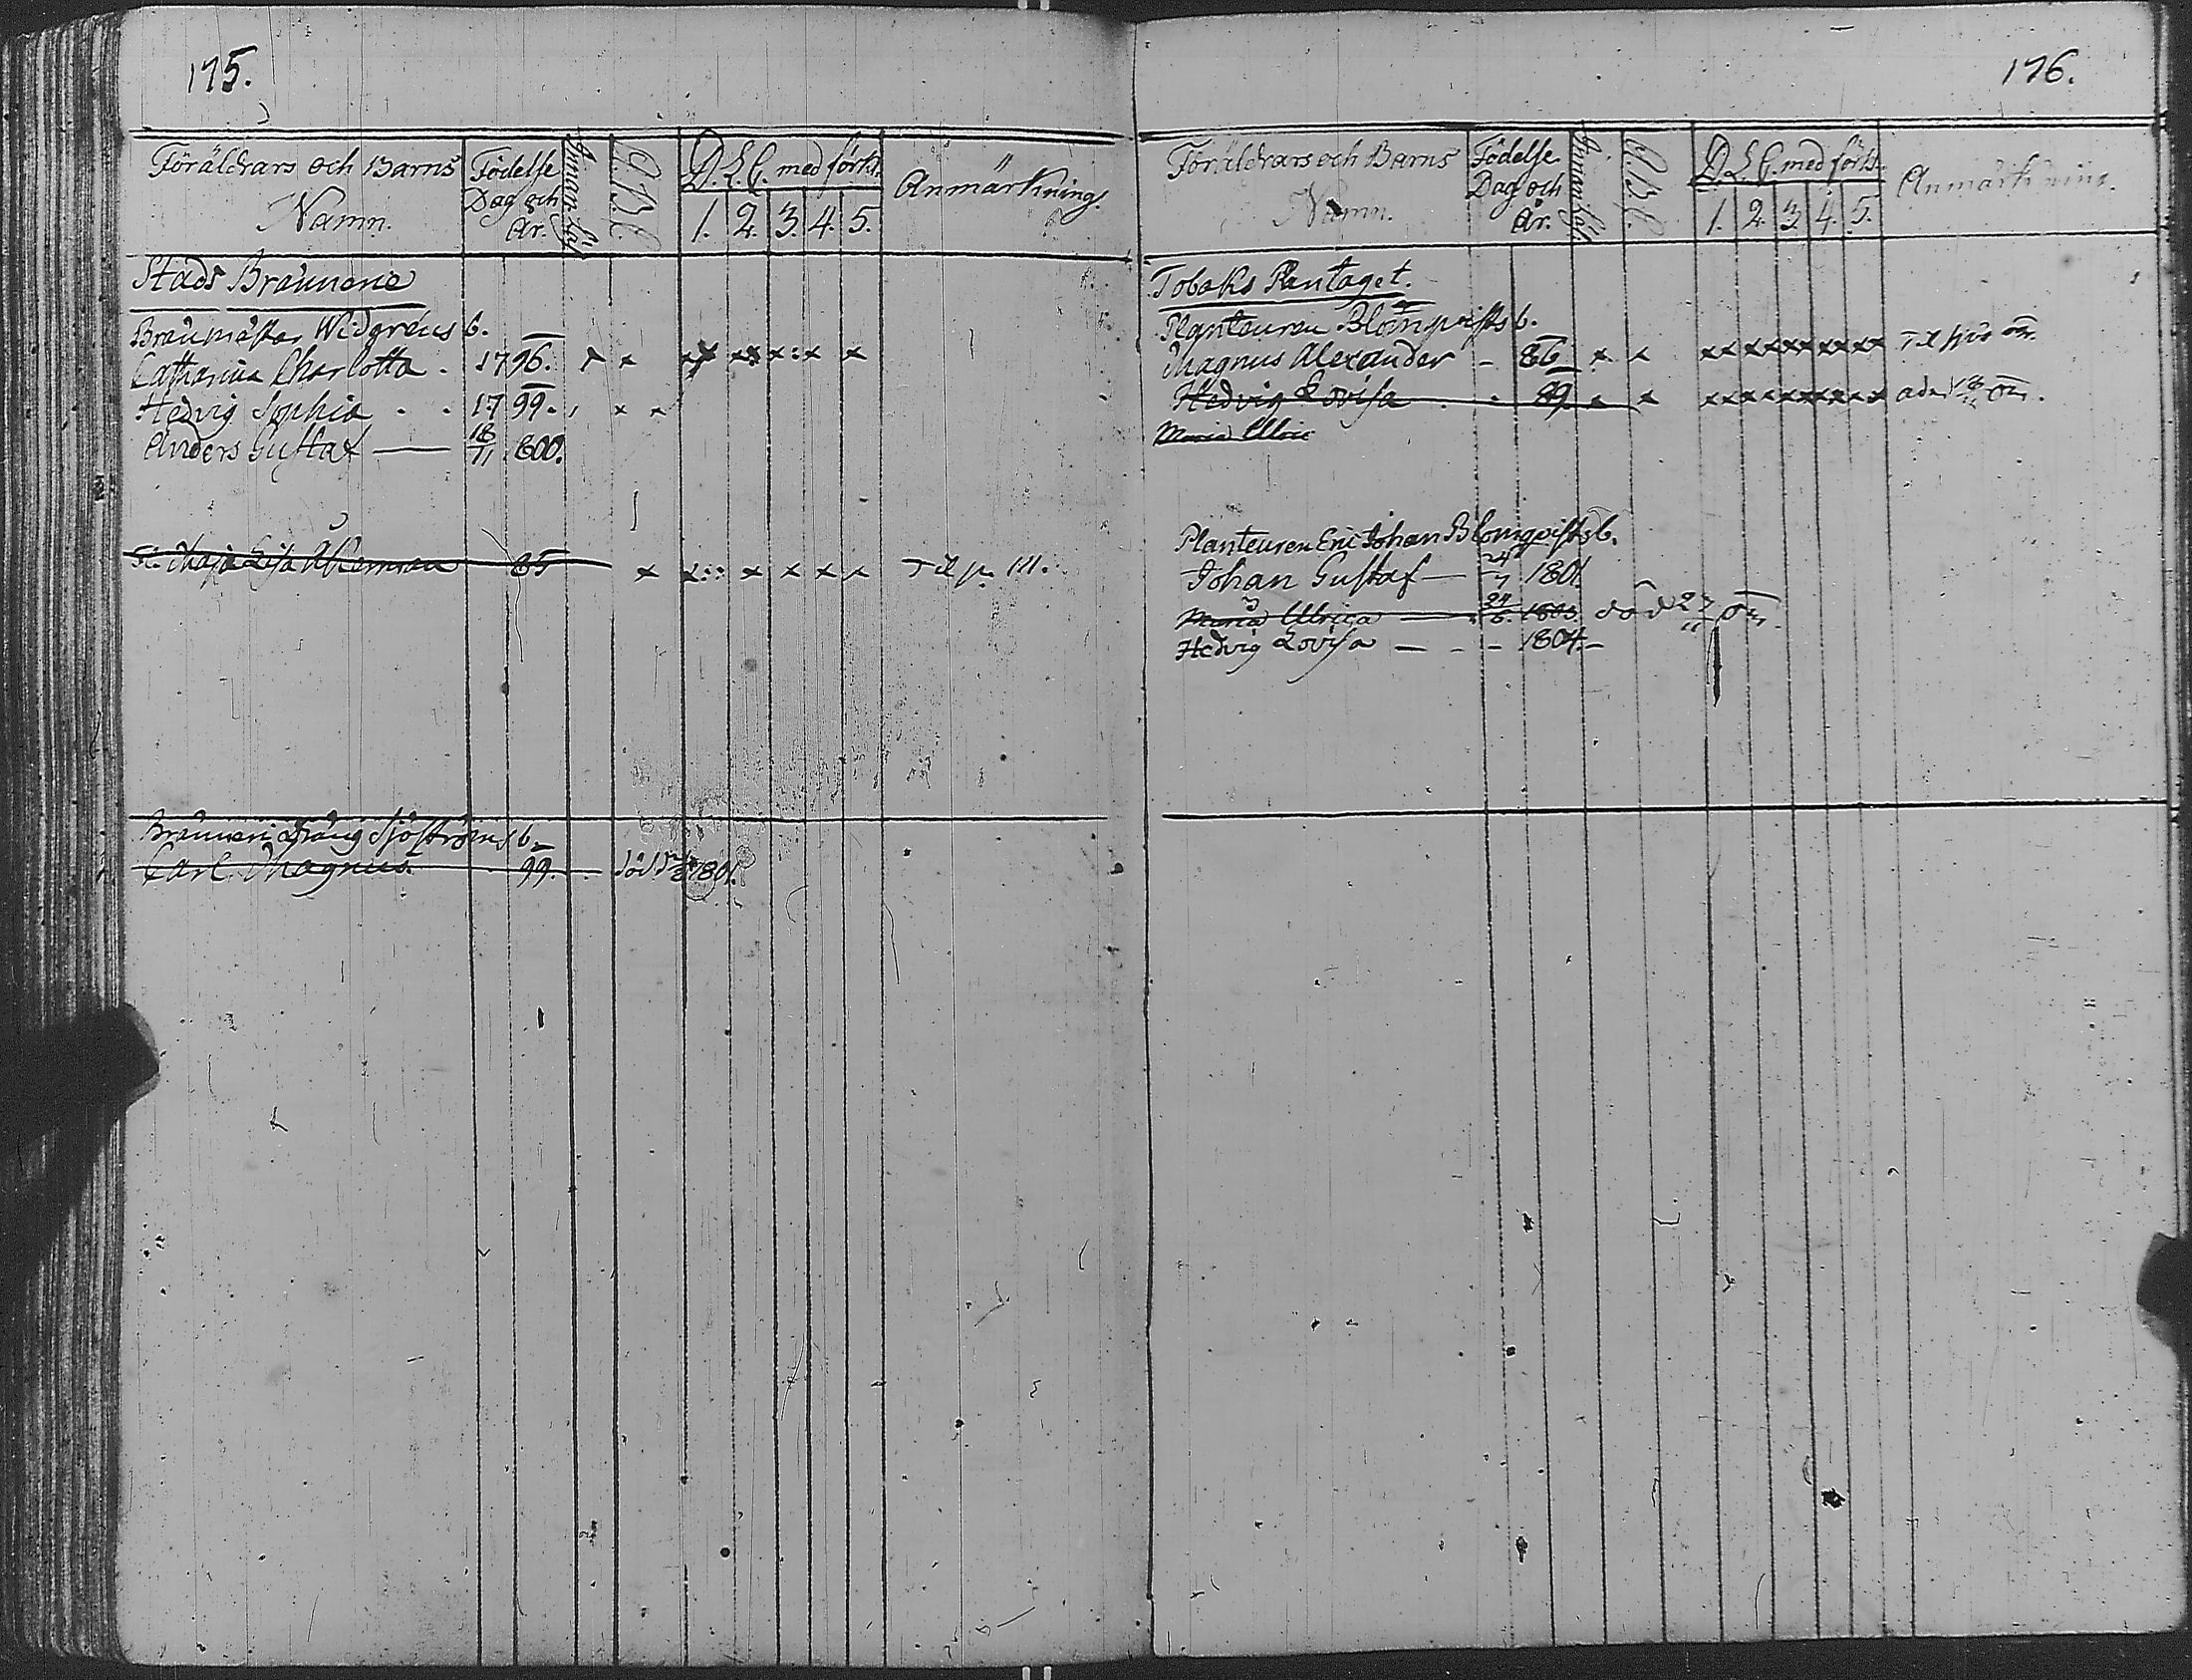 175.
Föräldrars och Barns Namn.
Födelse Dag och År.
A.B.C.
D. L. C. med förkl.
1. 2. 3. 4. 5.
Anmärkning.
Stads Brännerie
Widgréns b.
Catharina Charlotta . 1796. x x x x x x x
Hedvig Sophia . . 1799. x x
Anders Gustaf — 18/11 800.
Maja Lisa Åkerman 85 x x x x x x Til p. 111.
Bränneri Dräng Sjöströms b.
Carl Magnus. 99. död 1801.
176.
Föräldrars och Barns Namn.
Födelse Dag och År.
A.B.C.
D. L. C. med förkl.
1. 2. 3. 4. 5.
Anmärkning.
Tobaks Plantaget.
Planteuren Blomqvists b.
Magnus Alexander - 86 x x xx xx xx xx xx
Hedvig Lovisa . . 89. x x xx xx xx xx xx
Maria Ulric
Planteuren Eric Johan Blomqvists b.
Johan Gustaf — 24/7 1801
Maria Ulrica — 24/6. 1803. död 27/11
Hedvig Lovisa — - - 1804. -